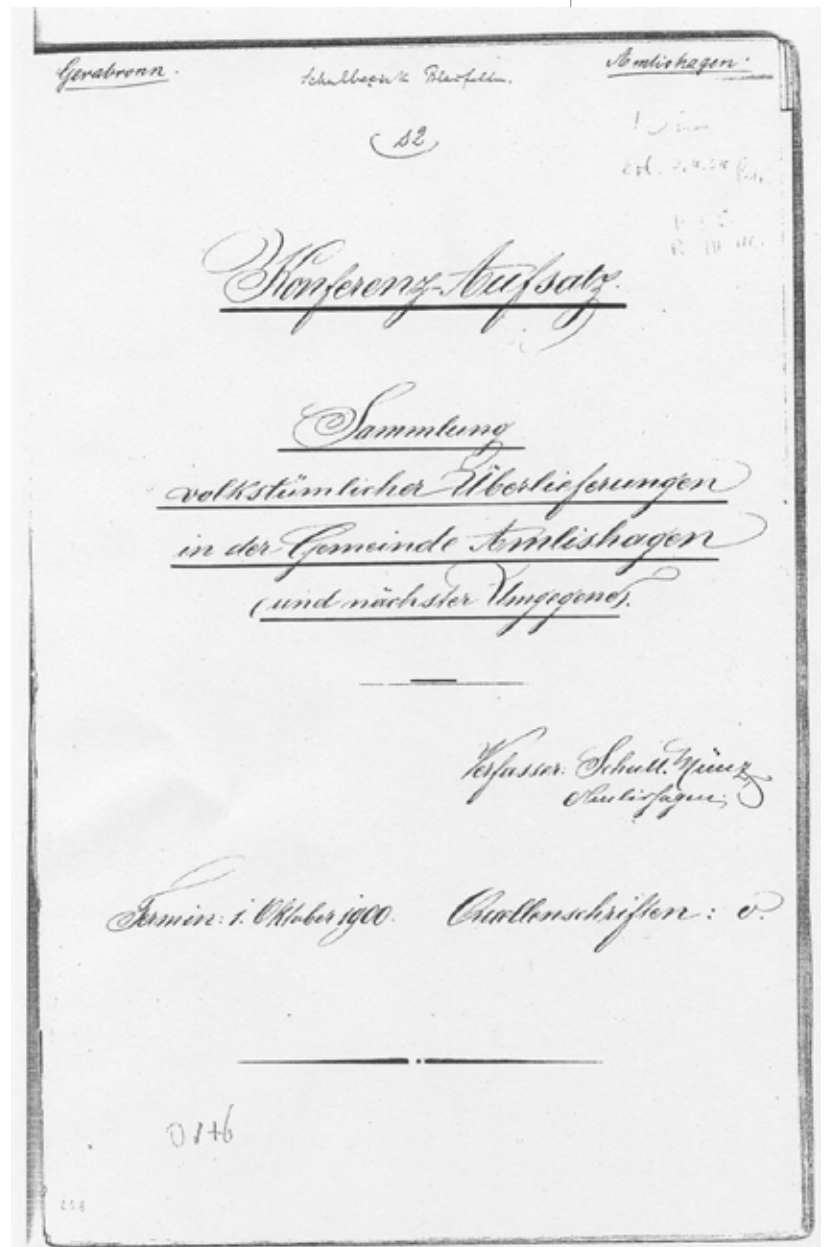 Gerabronn.
Schulbezirk Blaufelden.
Amlishagen.
Konferenz-Aufsatz.
Sammlung
volkstümlicher Überlieferungen
in der Gemeinde Amlishagen
(und nächster Umgegend).
Verfasser: Schull. Münz,
Amlishagen.
Termin: 1. Oktober 1900. Quellenschriften: o.